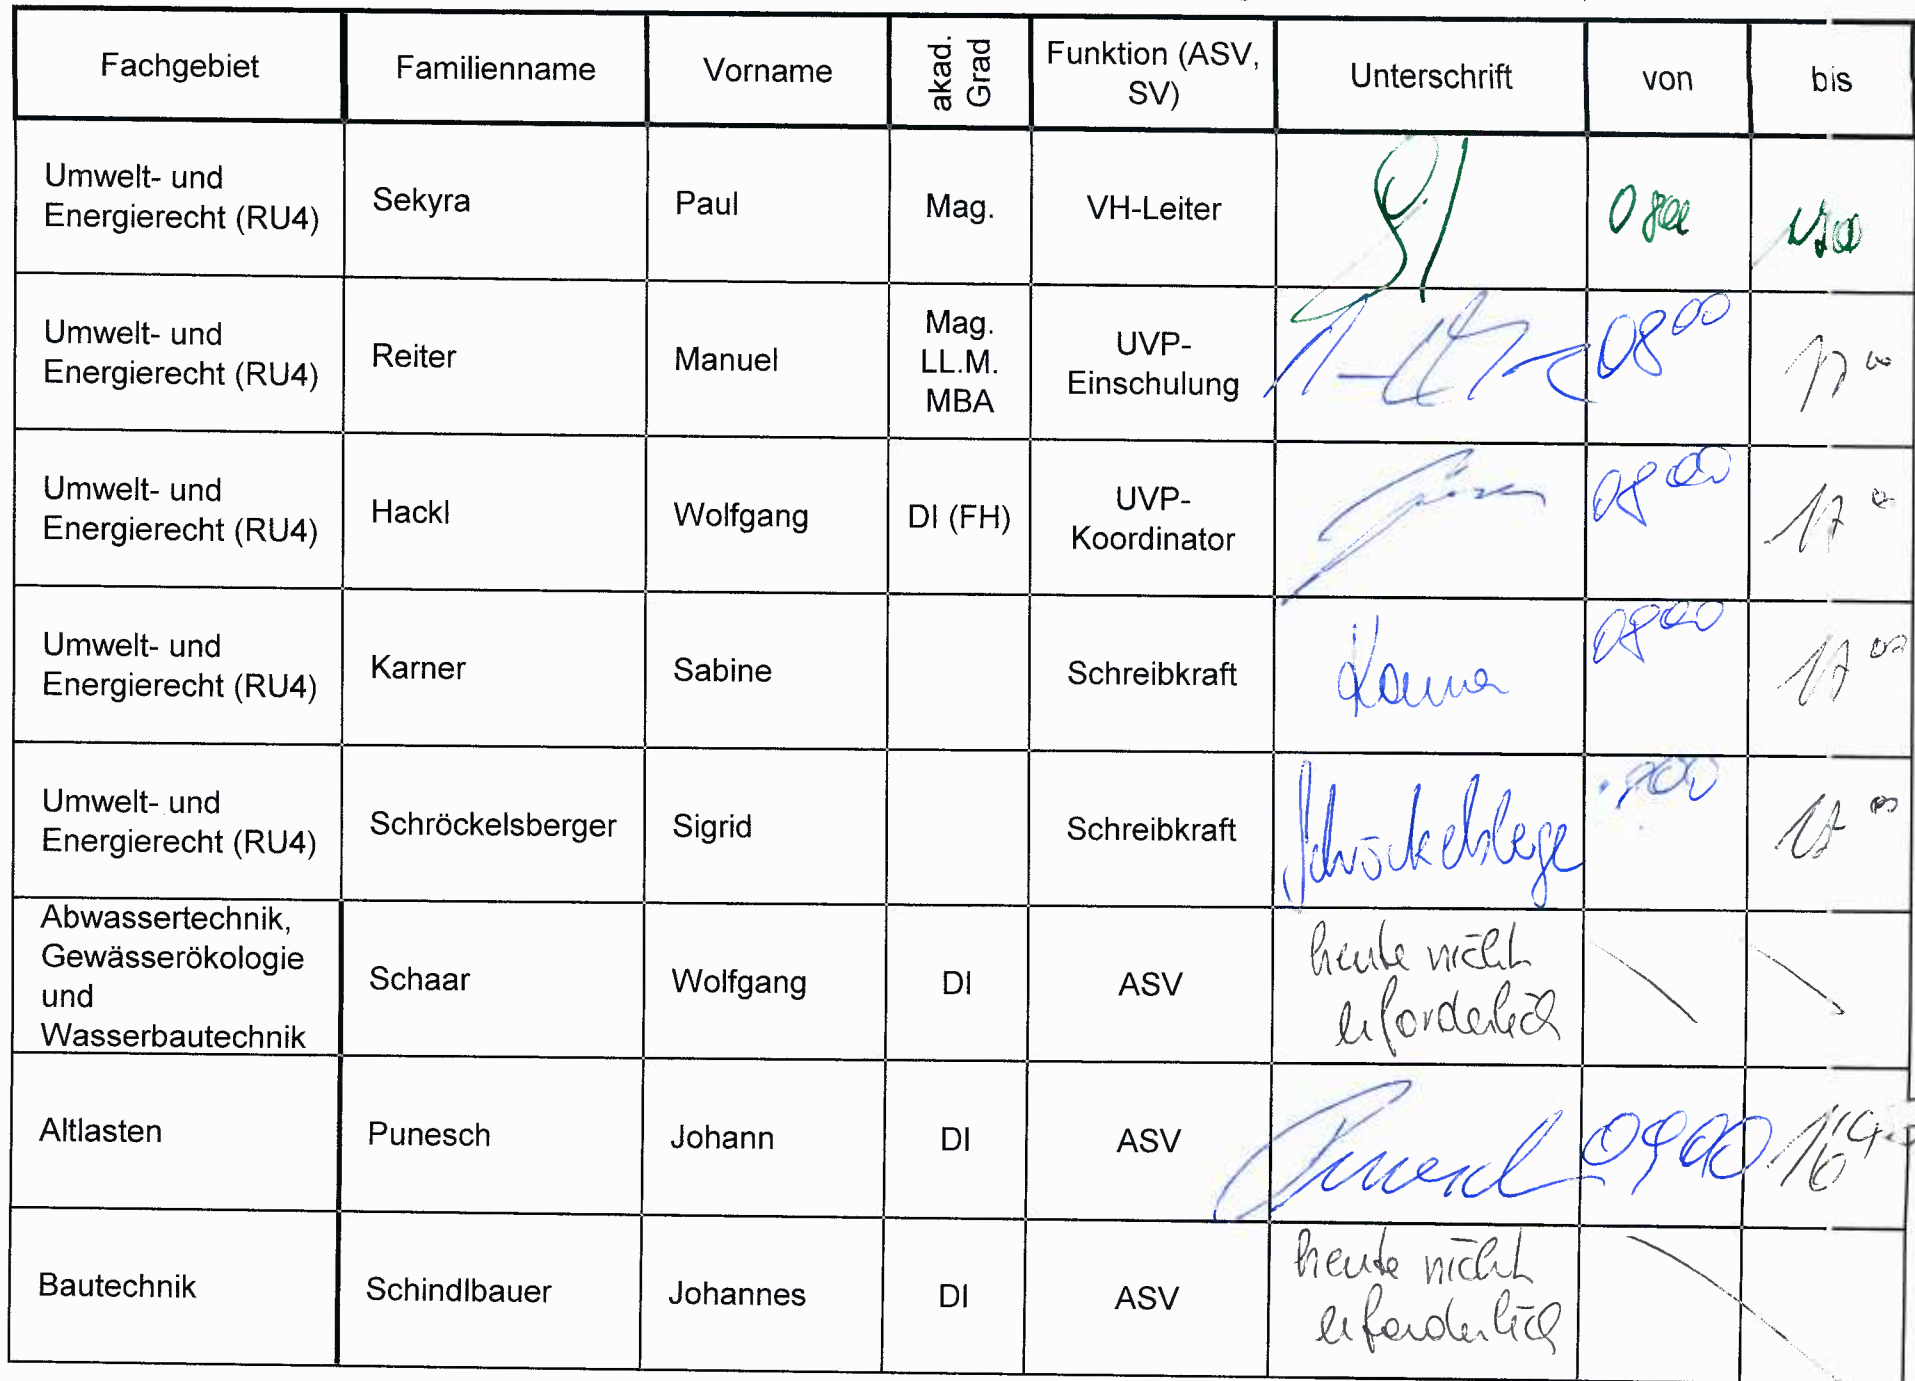 Fachgebiet Familienname Vorname akad. Grad Funktion (ASV, SV) Unterschrift von bis
Umwelt- und
Energierecht (RU4) Sekyra Paul Mag. VH-Leiter
Umwelt- und
Energierecht (RU4) Reiter Manuel Mag. LL.M. MBA UVP-Einschulung 08 00 17 00
Umwelt- und
Energierecht (RU4) Hackl Wolfgang DI (FH) UVP-Koordinator 08 00 17
Umwelt- und
Energierecht (RU4) Karner Sabine Schreibkraft Karner 08 00 17 00
Umwelt- und
Energierecht (RU4) Schröckelsberger Sigrid Schreibkraft Schröckelsberger 17 00
Abwassertechnik,
Gewässerökologie
und
Wasserbautechnik Schaar Wolfgang DI ASV heute nicht
erforderlich
Altlasten Punesch Johann DI ASV Punesch 09 00
Bautechnik Schindlbauer Johannes DI ASV heute nicht
erforderlich